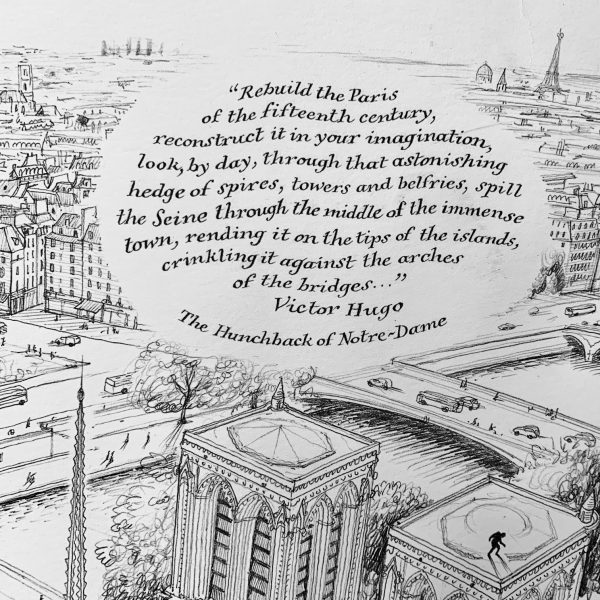 “Rebuild the Paris
of the fifteenth century,
reconstruct it in your imagination,
look, by day, through that astonishing
hedge of spires, towers and belfries, spill
the Seine through the middle of the immense
town, rending it on the tips of the islands,
crinkling it against the arches
of the bridges...”
Victor Hugo
The Hunchback of Notre-Dame